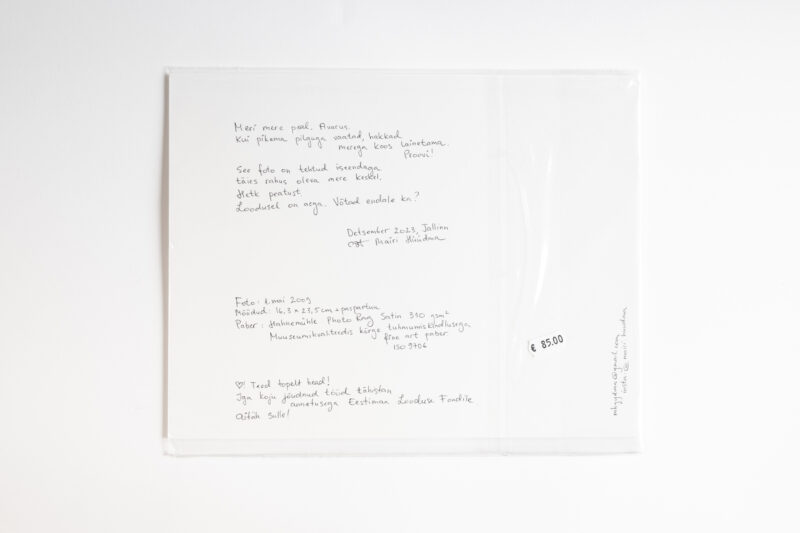 Meri mere peal. Avarus.
Kui pikema pilguga vaatad, hakkad
merega koos lainetama.
Proovi!
See foto on tehtud iseendaga
täies rahus oleva mere keskel.
Hetk peatust.
Loodusel on aega. Võtad endale ka?
Detsember 2023, Tallinn
Mairi Hüüdma
Foto: 1. mai 2009
Mõõdud: 16,3 x 23,5 cm + paspartuu
Paber: Hahnemühle Photo Rag Satin 310 gsm²
Muuseumikvaliteedis kõrge tuhmumiskindlusega
fine art paber
ISO 9706
♡! Teed topelt head!
Iga koju jõudnud tööd tähistan
annetusega Eestimaa Looduse Fondile
Aitäh Sulle!
€ 85.00
@gmail.com
insta @